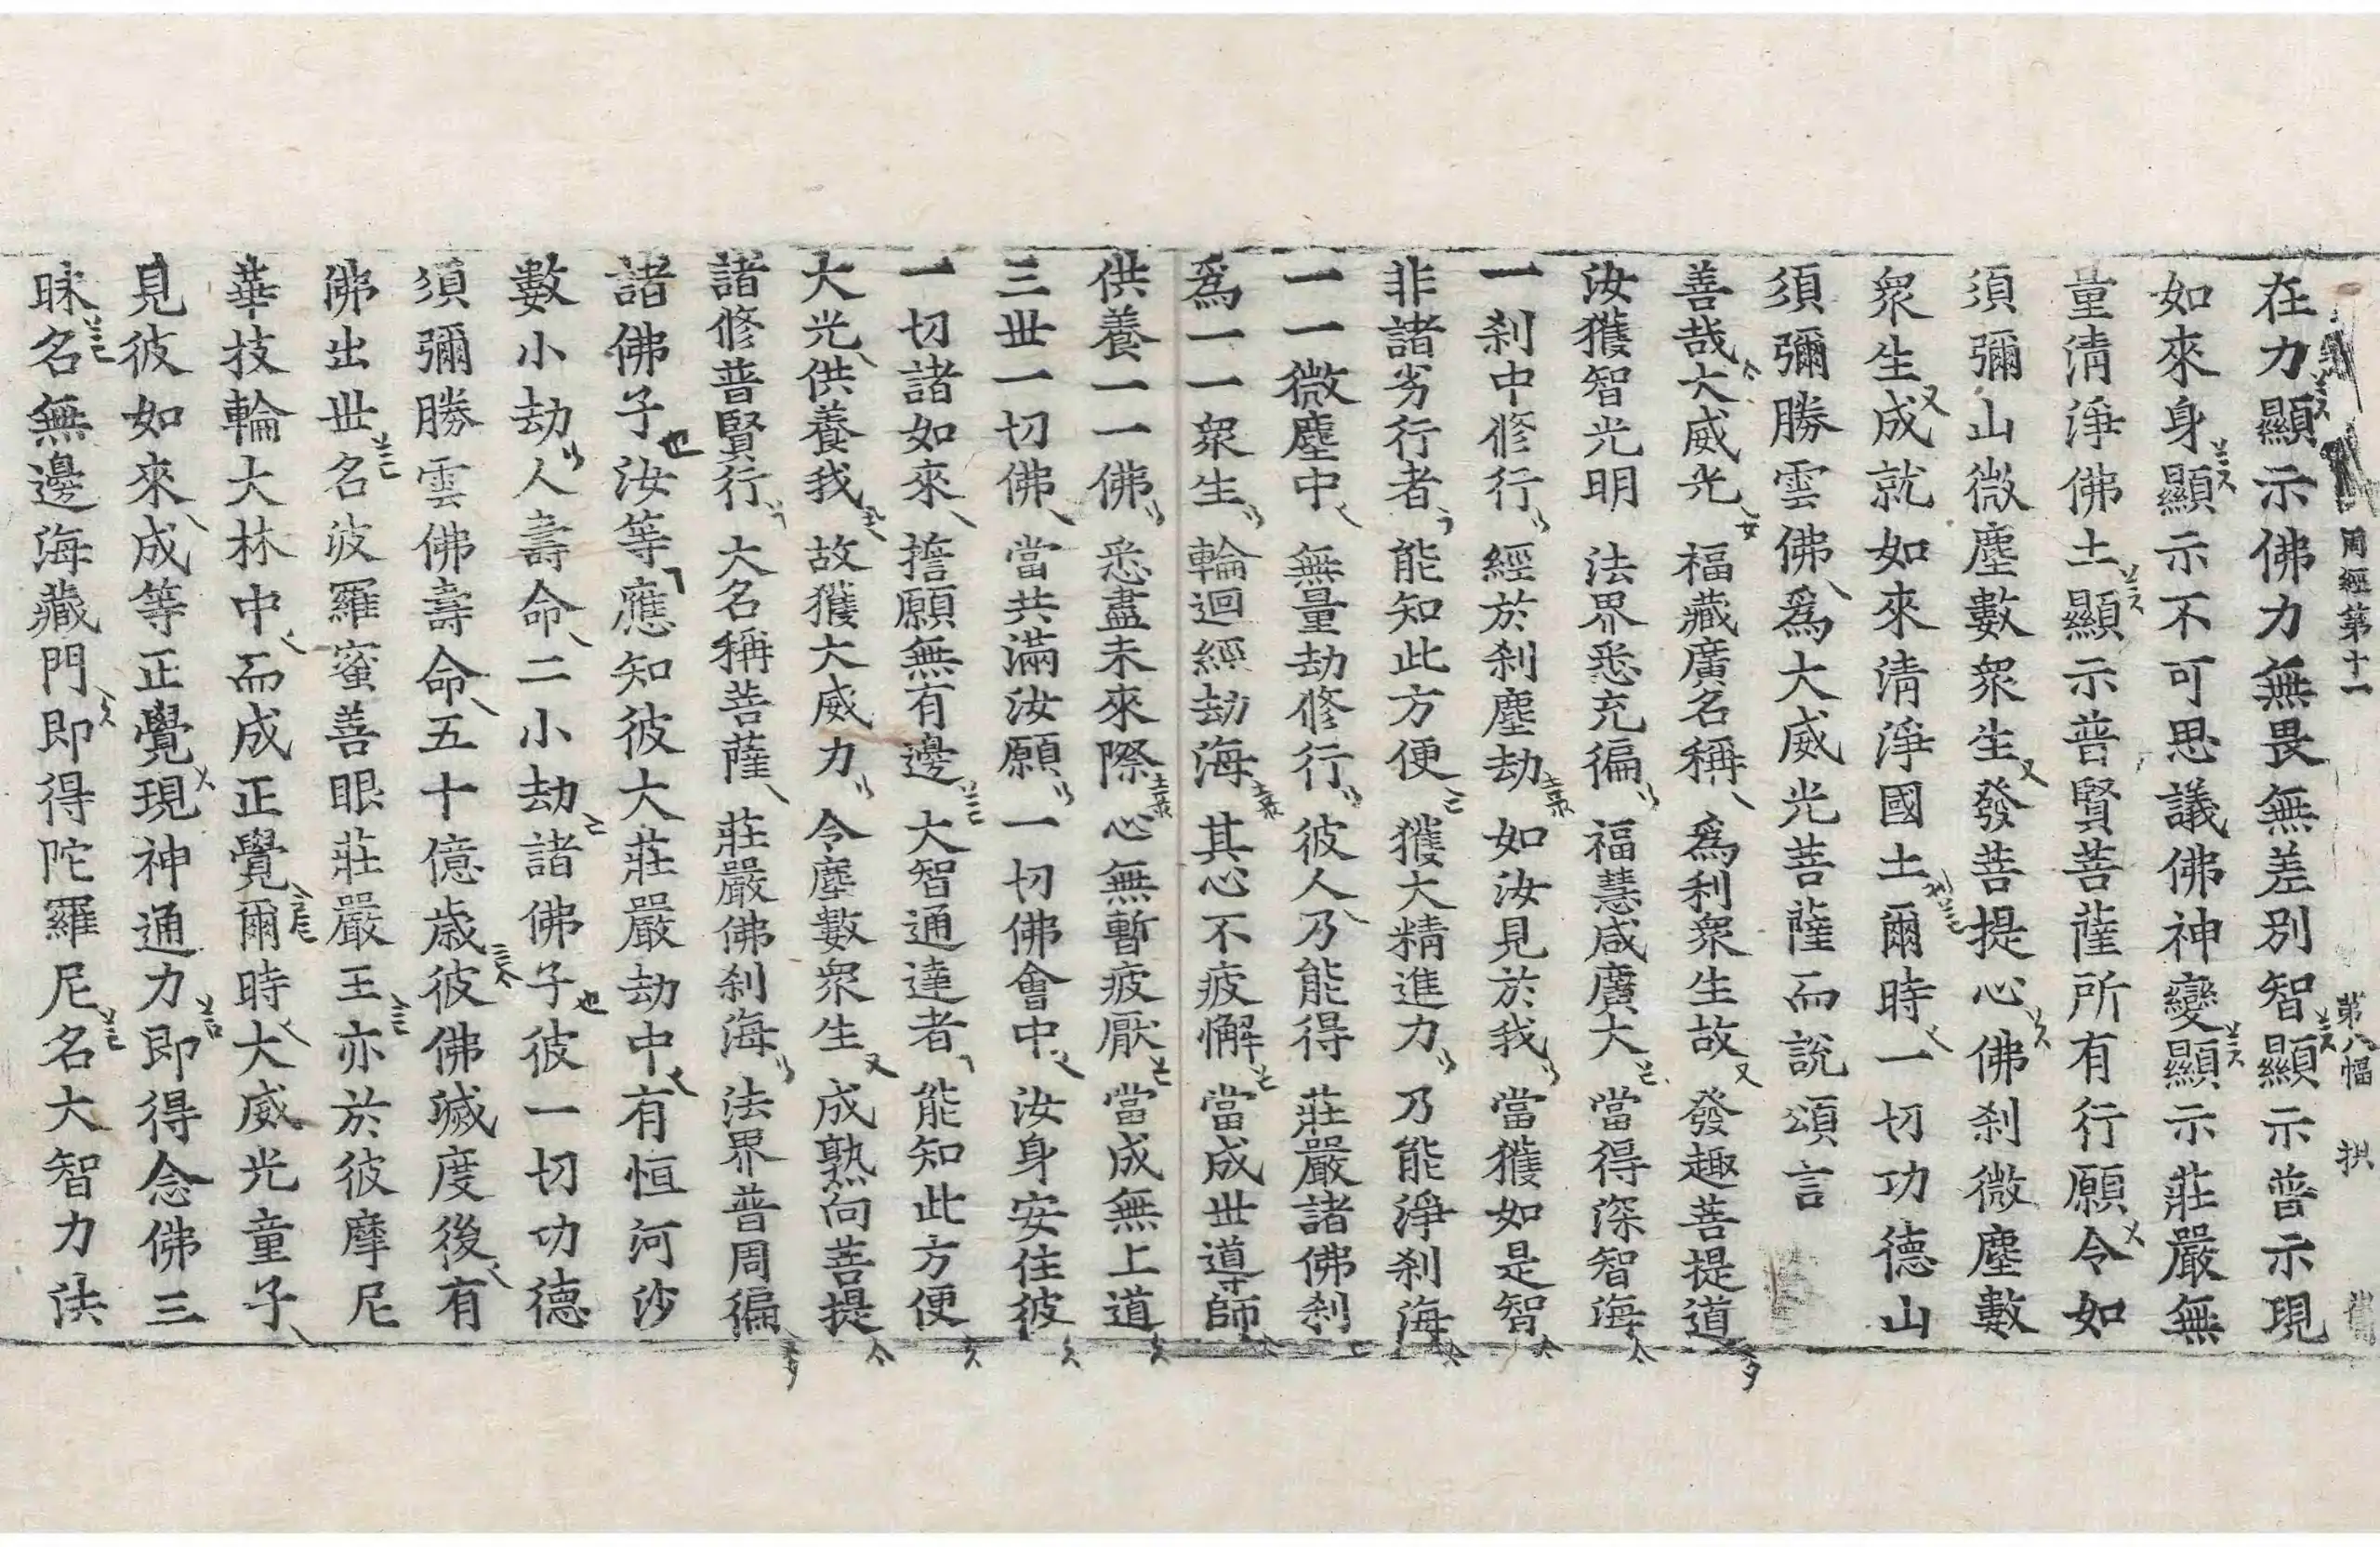 周經第十一 第八幅 拱
在力顯示佛力無畏無差別智顯示普示現
如來身顯示不可思議佛神變顯示莊嚴無
量清淨佛土顯示普賢菩薩所有行願令如
須彌山微塵數衆生發菩提心佛刹微塵數
衆生成就如來清淨國土爾時一切功德山
須彌勝雲佛爲大威光菩薩而說頌言
善哉大威光 福藏廣名稱 爲利衆生故 發趣菩提道
汝獲智光明 法界悉充徧 福慧咸廣大 當得深智海
一刹中修行 經於刹塵劫 如汝見於我 當獲如是智
非諸劣行者 能知此方便 獲大精進力 乃能淨刹海
一一微塵中 無量劫修行 彼人乃能得 莊嚴諸佛刹
爲一一衆生 輪迴經劫海 其心不疲懈 當成世導師
供養一一佛 悉盡未來際 心無暫疲厭 當成無上道
三世一切佛 當共滿汝願 一切佛會中 汝身安住彼
一切諸如來 誓願無有邊 大智通達者 能知此方便
大光供養我 故獲大威力 令塵數衆生 成熟向菩提
諸修普賢行 大名稱菩薩 莊嚴佛刹海 法界普周徧
諸佛子汝等應知彼大莊嚴劫中有恒河沙
數小劫人壽命二小劫諸佛子彼一切功德
須彌勝雲佛壽命五十億歲彼佛滅度後有
佛出世名波羅蜜善眼莊嚴王亦於彼摩尼
華技輪大林中而成正覺爾時大威光童子
見彼如來成等正覺現神通力即得念佛三
昧名無邊海藏門即得陀羅尼名大智力法